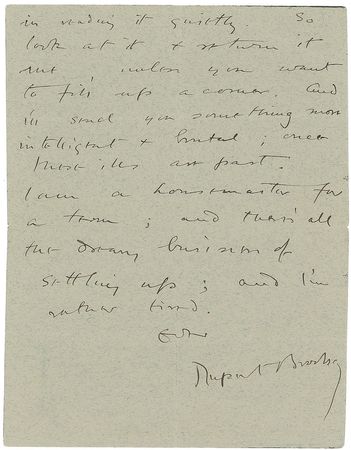 in reading it quietly. So
look at it & return it
me unless you want
to fill up a corner. And
I'll send you something more
intelligent & brutal; once
these ills are past.
I am a housemaster for
a term; and there's all
the dreary business of
settling up; and I'm
rather tired.
Ever
Rupert Brooke